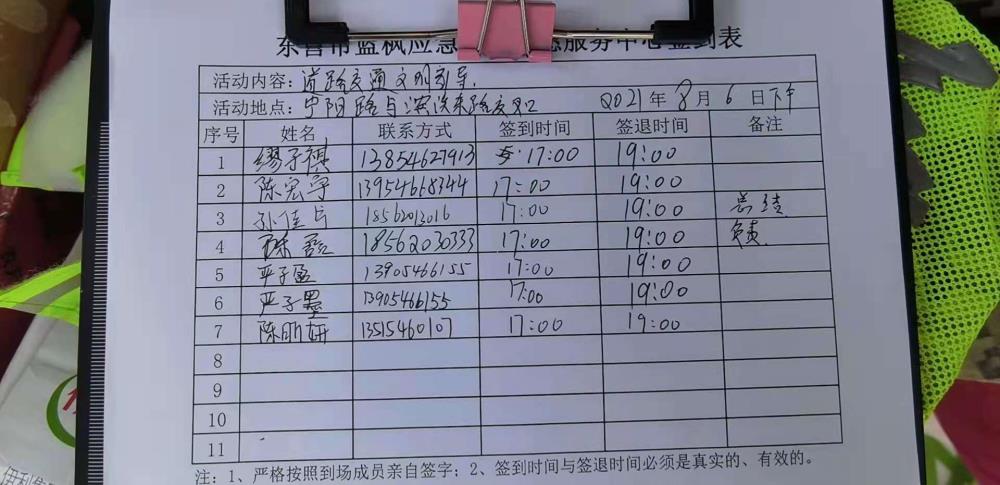 东营市蓝枫应急 服务中心签到表
活动内容: 道路交通文明引导.
活动地点: 宁阳路与 路交叉口 2021年 8月 6日下午
序号 姓名 联系方式 签到时间 签退时间 备注
1 缪子祺 13854627913 17:00 19:00
2 陈宏宇 13954668344 17:00 19:00
3 孙佳 18562013016 17:00 19:00 总结
4 18562030333 17:00 19:00 负责
5 严子盈 13905466155 17:00 19:00
6 严子墨 13905466155 17:00 19:00
7 陈明妍 13515460107 17:00 19:00
8
9
10
11
注: 1、严格按照到场成员亲自签字; 2、签到时间与签退时间必须是真实的、有效的。
伊利集